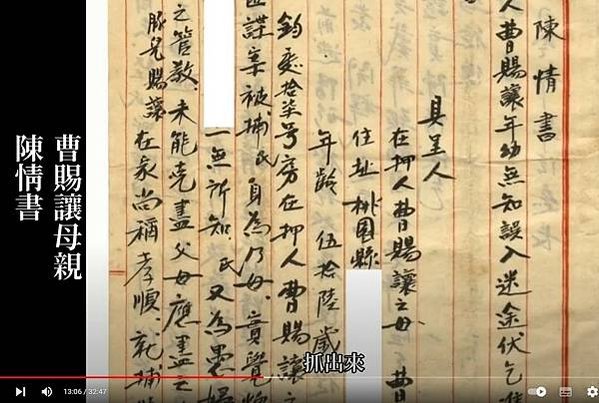 曹賜讓母親
陳情書
陳情書
人曹賜讓年幼無知誤入迷途伏乞准
具呈人
在押人曹賜讓之母 曹
住址桃園縣
年齡伍拾陸歲
鈞處拾柒号房在押人曹賜讓之
匪諜案被捕氏身為乃母實覺
一無所知氏又為愚婦
之管教未能克盡父母應盡之
豚兒賜讓在家尚稱孝順就捕
抓出來
13:06 / 32:47